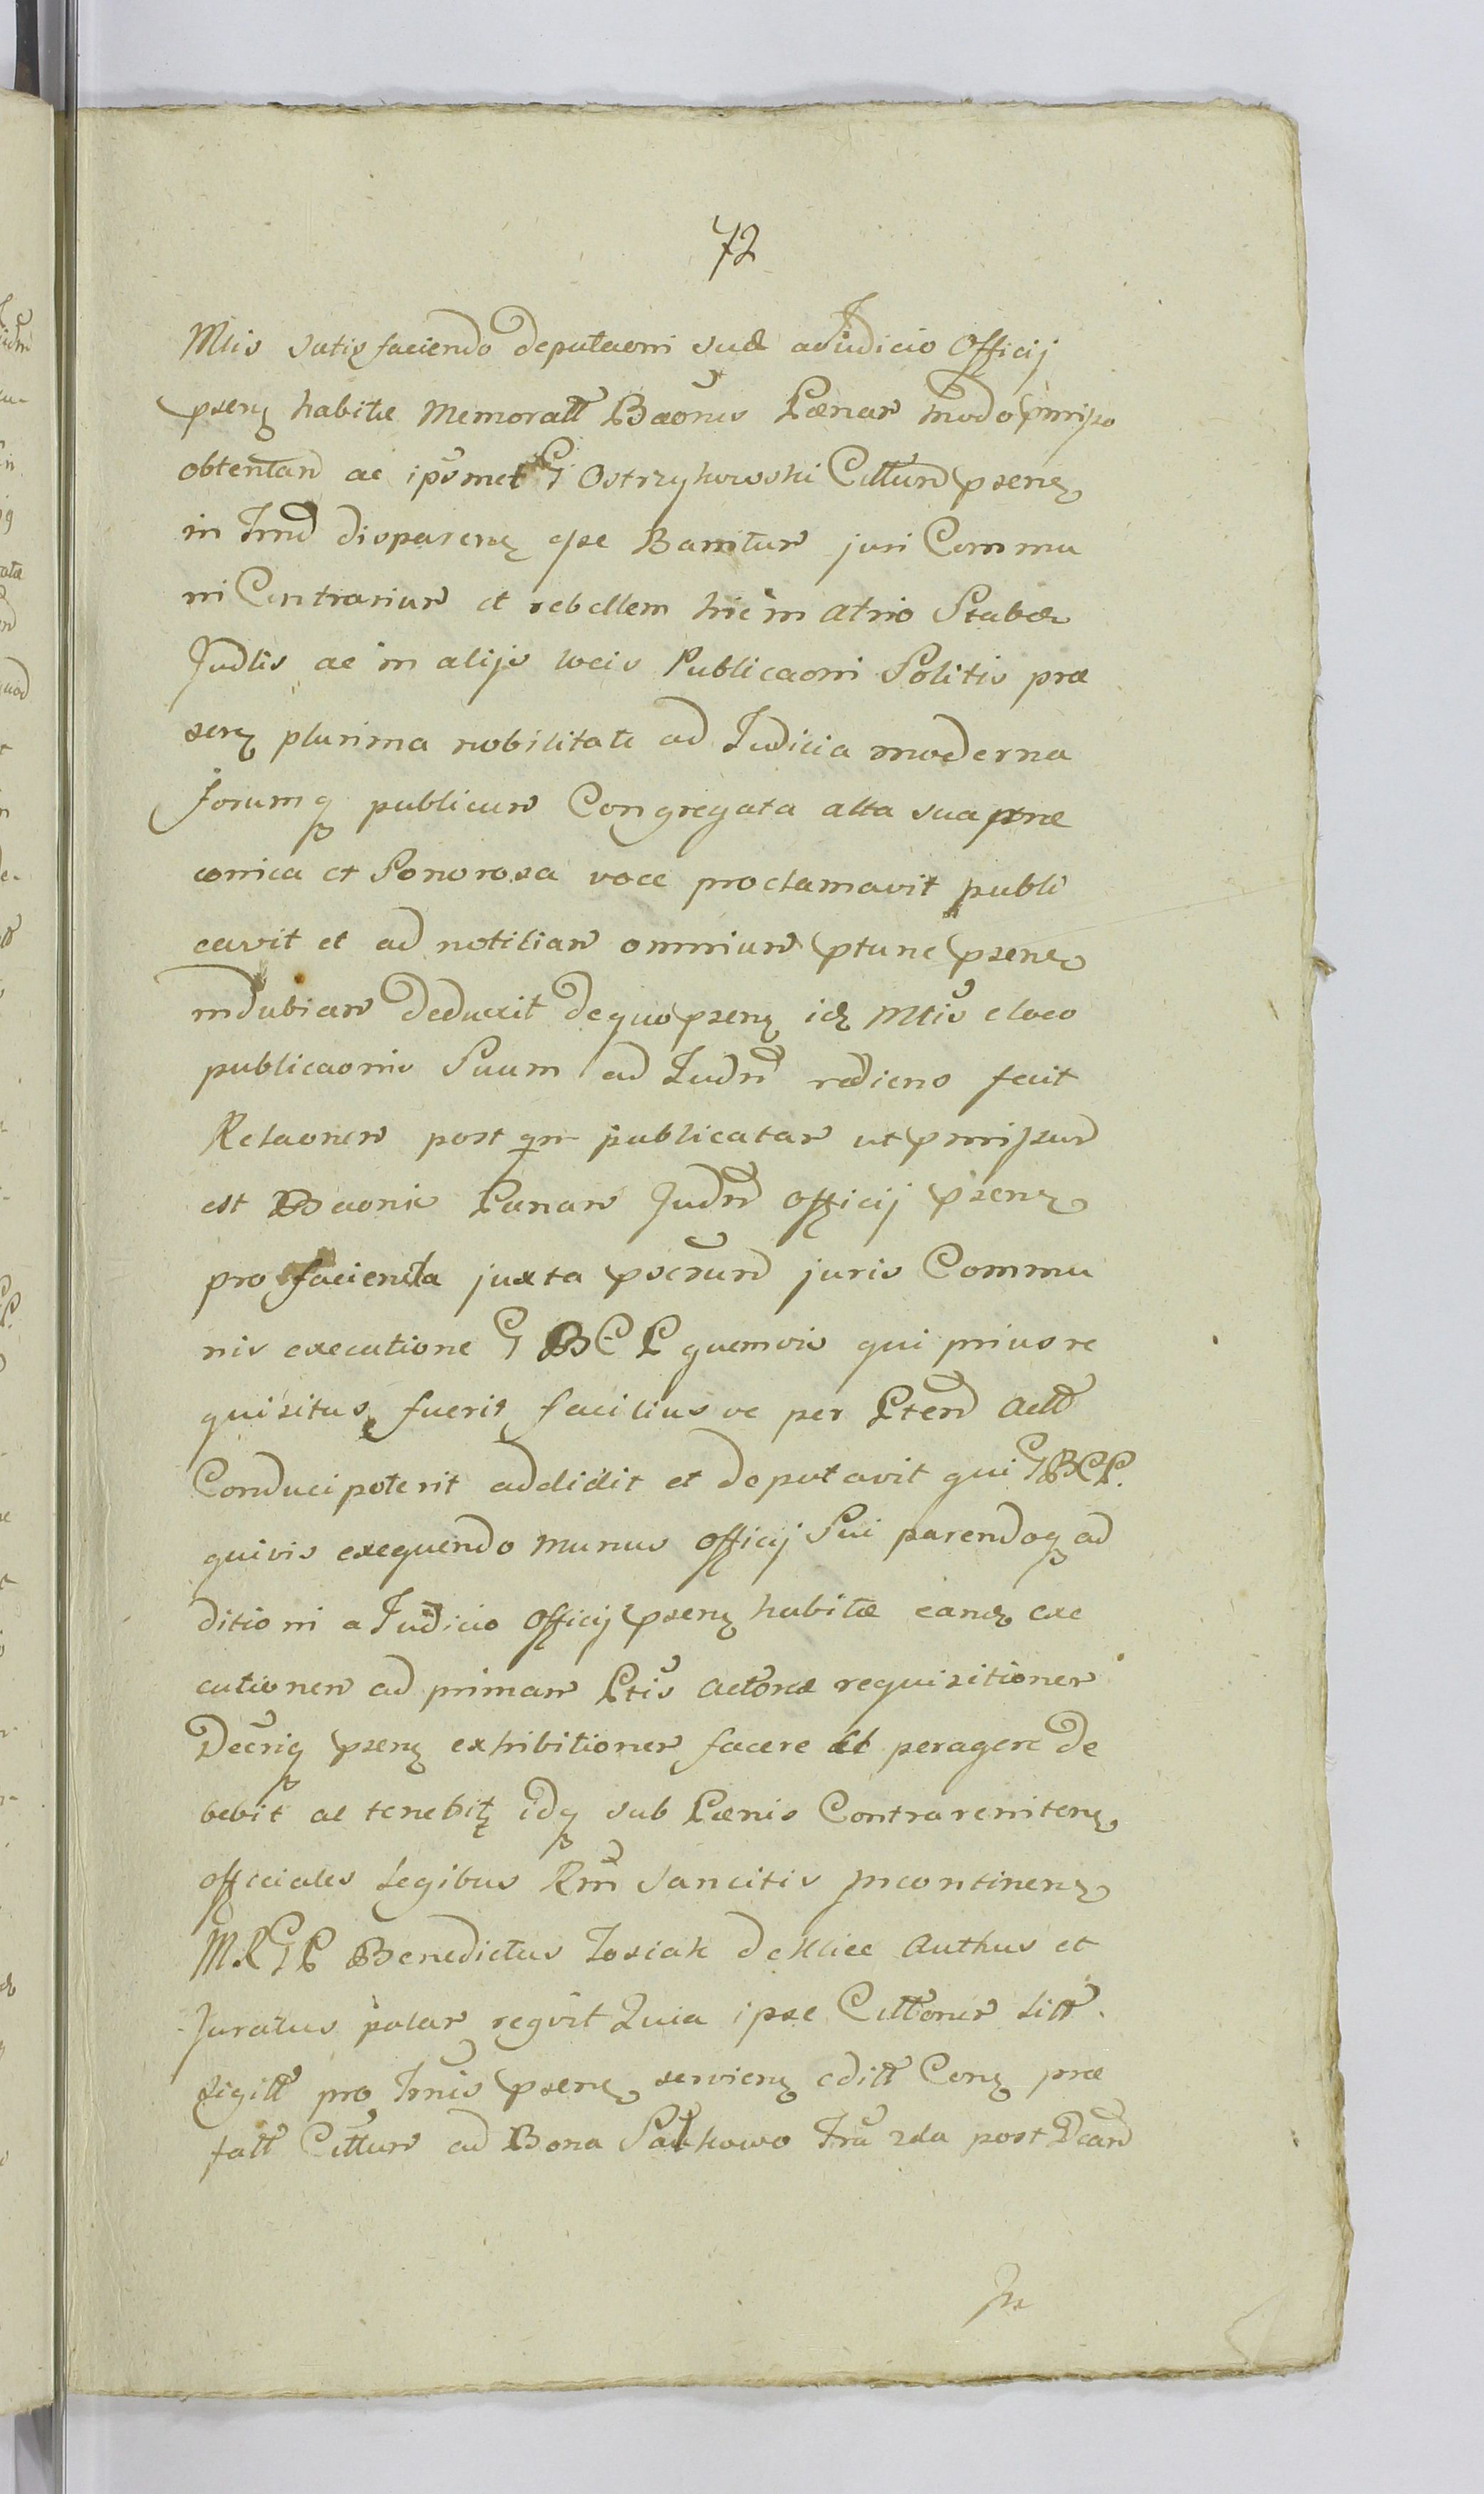 72
Mtis satisfaciendo deputaoni suæ a Judicio Officij
psenz habitæ Memoratt Baonis Pænam modo pmisso
obtentam ac ipsmet G Ostrzykowski Citturn psenz
in Trno disparenz esse Banitum juri Commu
ni Contrarium et rebellem hic in atrio Stubæ
Judlis ac in alijs locis Publicaoni Solitis præ
senz plurima nobilitate ad Judicia moderna
forumq publicum Congregata alta sua præ
conica et Sonorosa voce proclamavit publi
cavit et ad notitiam omnium ptunc psenz
indubiam deduxit de quo psenz idz Mtis e loco
publicaonis Suum ad Judm rediens fecit
Relaonem post qm publicatam ut pmissum
est Baonis Pænam Judm officij psenz
pro facienda juxta pscrum juris Commu
nis executione G B C P quemvis qui prius re
quisitus fuerit faciliusve per Ptem Actt
Conduci poterit addidit et deputavit qui G B C P.
quivis exequendo munus officij Sui parendoq ad
ditioni a Judicio Officij psenz habitæ eandz exe
cutionem ad primam Ptis Actoræ requisitionem
Decrijq psenz exhibitionem facere et peragere de
bebit ac tenebitz idq sub Pænis Contra renitenz
officiales Legibus Rni Sancitis incontinenz
M. R G P Benedictus Tosiak de Kliee Authus et
Juratus palam regvit Quia ipse Cittonem Litt.
Sigill pro Trnis psenz servienz editt Cenz præ
fatt Cittum ad Bona Saćkowo fra 2da post Dcam
In